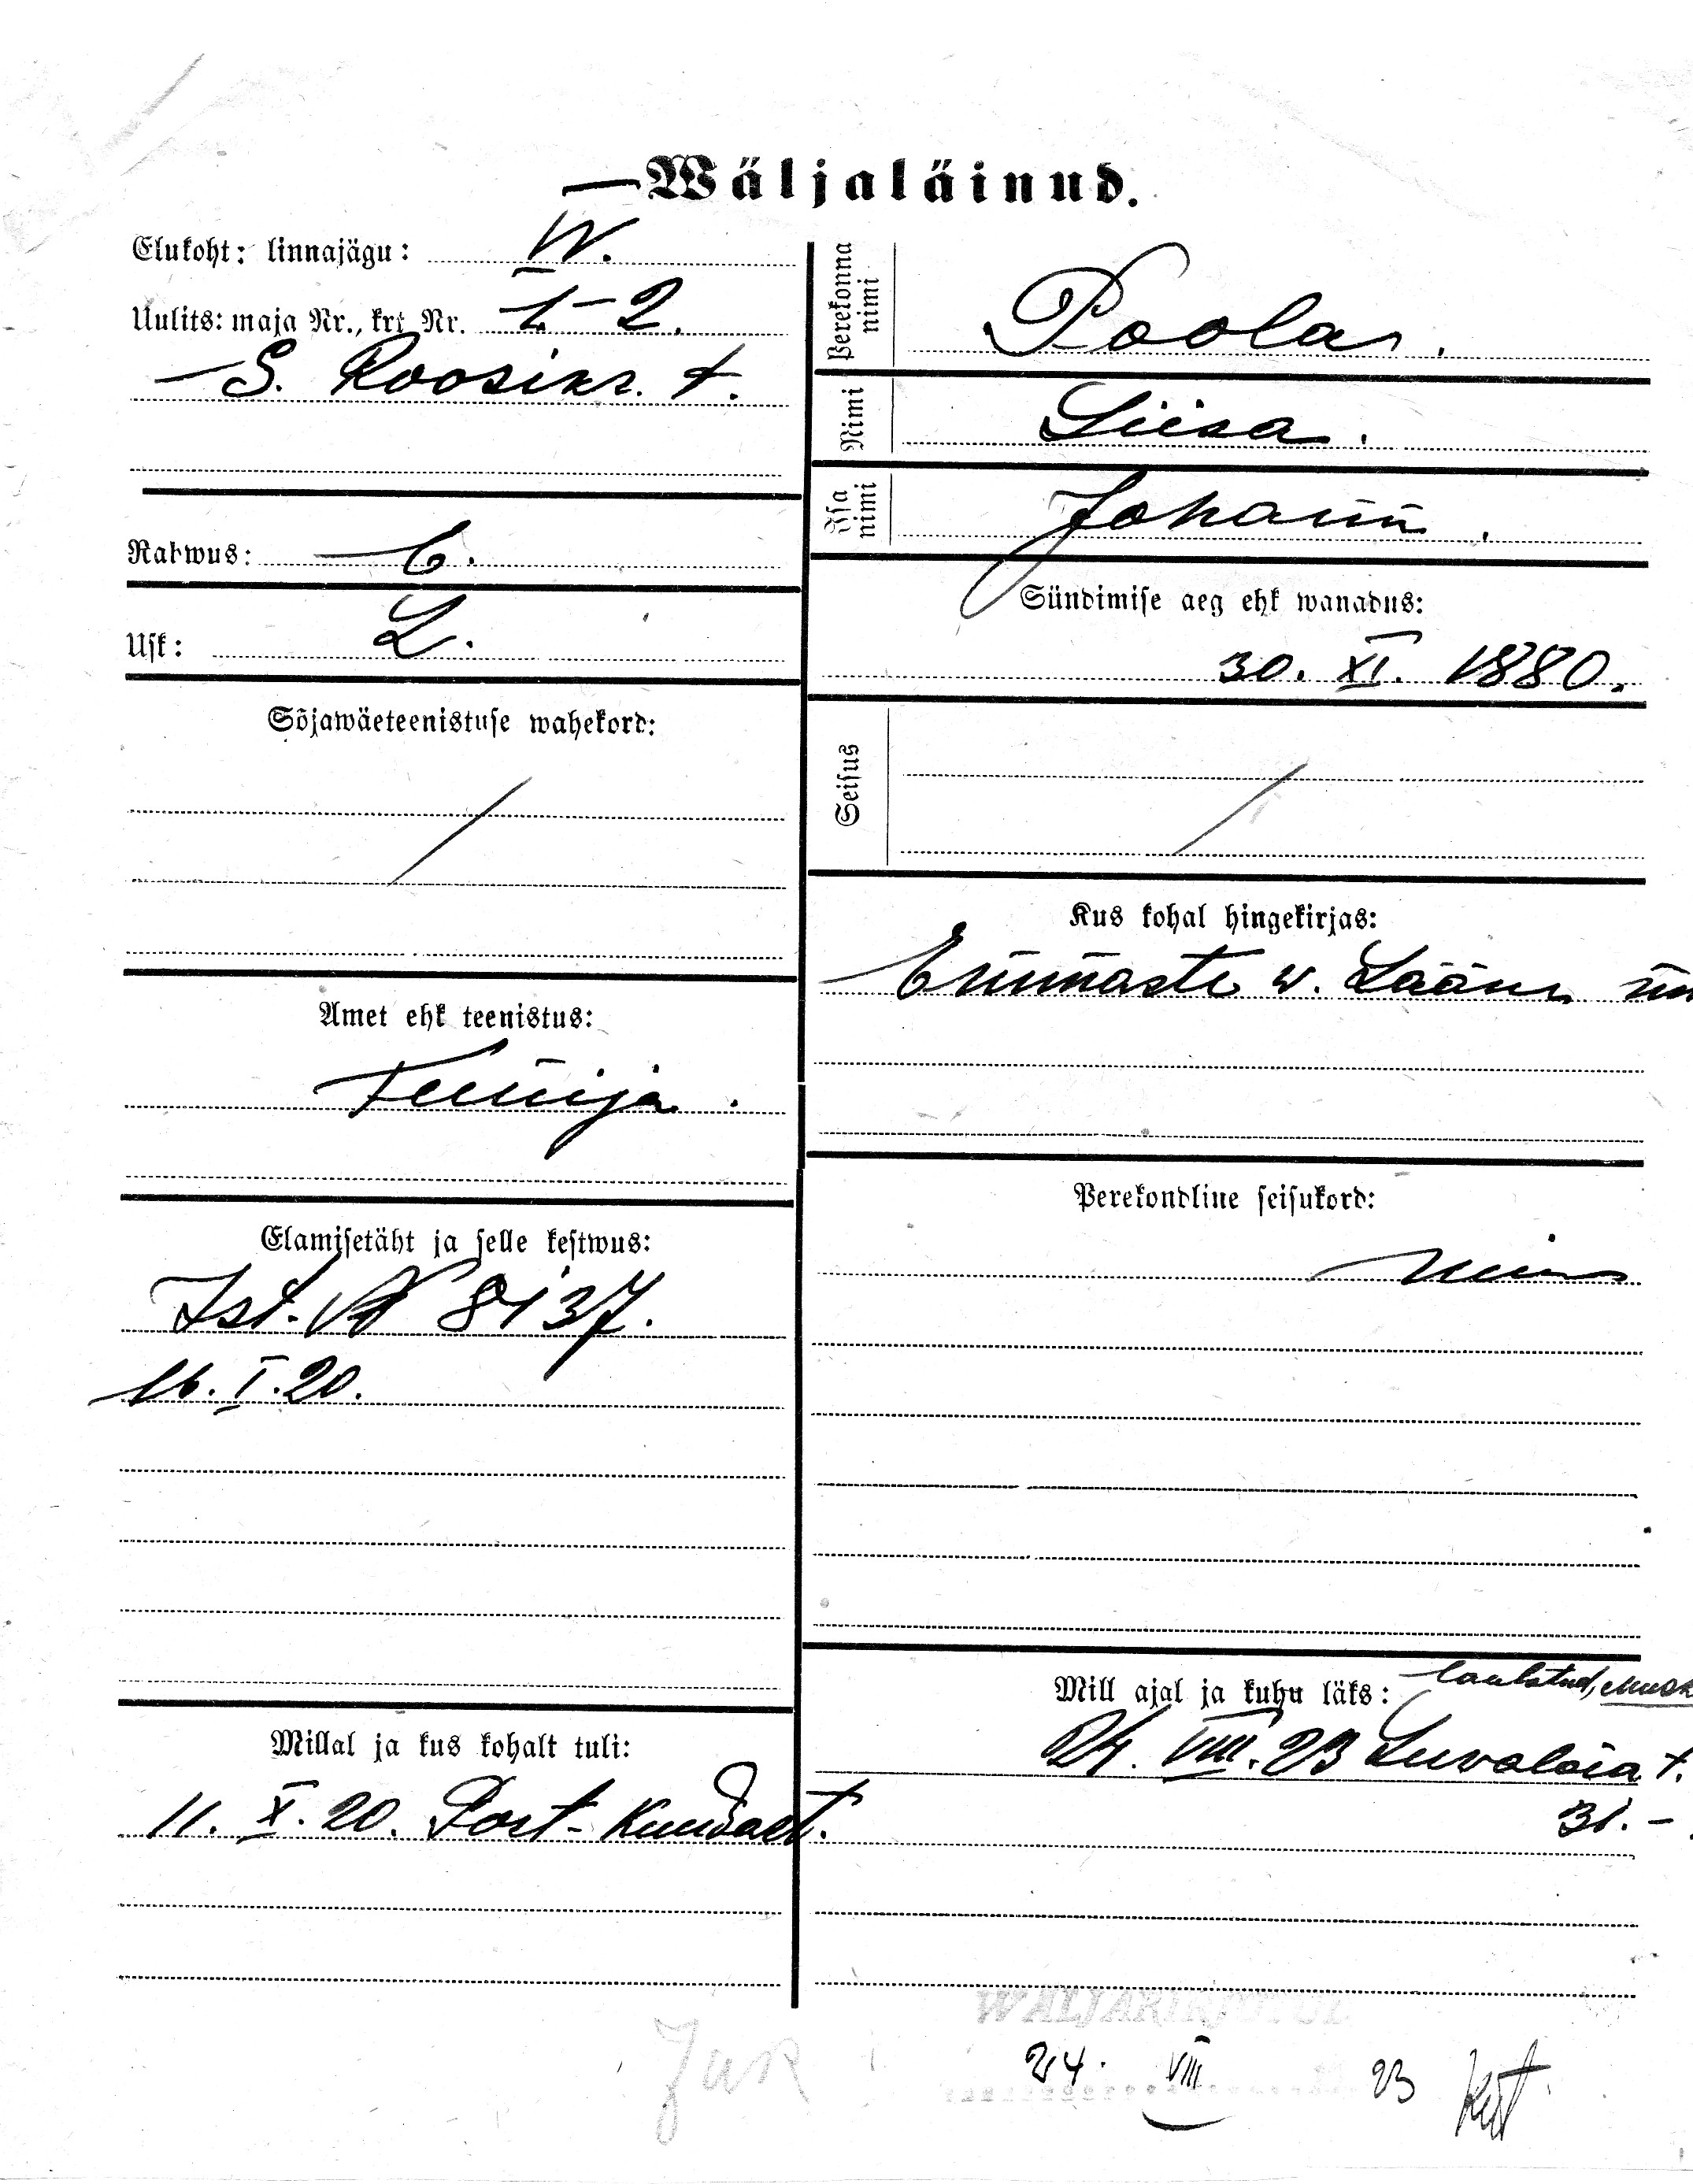 Wäljaläinud.
Elukoht: linnajägu: W.
Uulits: maja Nr., krt Nr. 1-2.
S. Roosikr. t.
Rahwus: E.
Usk: L.
Sõjawäeteenistuse wahekord:
Amet ehk teenistus:
Teenija.
Elamisetäht ja selle kestwus:
Ist. № 8137.
16. I. 20.
Millal ja kus kohalt tuli:
11. X. 20. Port-Kundast.
Perekonna nimi
Poola
Nimi
Liisa.
Isa nimi
Johann.
Sündimise aeg ehk wanadus:
30. XI. 1880.
Seisus
Kus kohal hingekirjas:
Emmaste w. Lääne
Perekondline seisukord:
Mill ajal ja kuhu läks:
24. VIII. 23 t.
31.-
WÄLJAKIRJUTUD
24. VIII 23